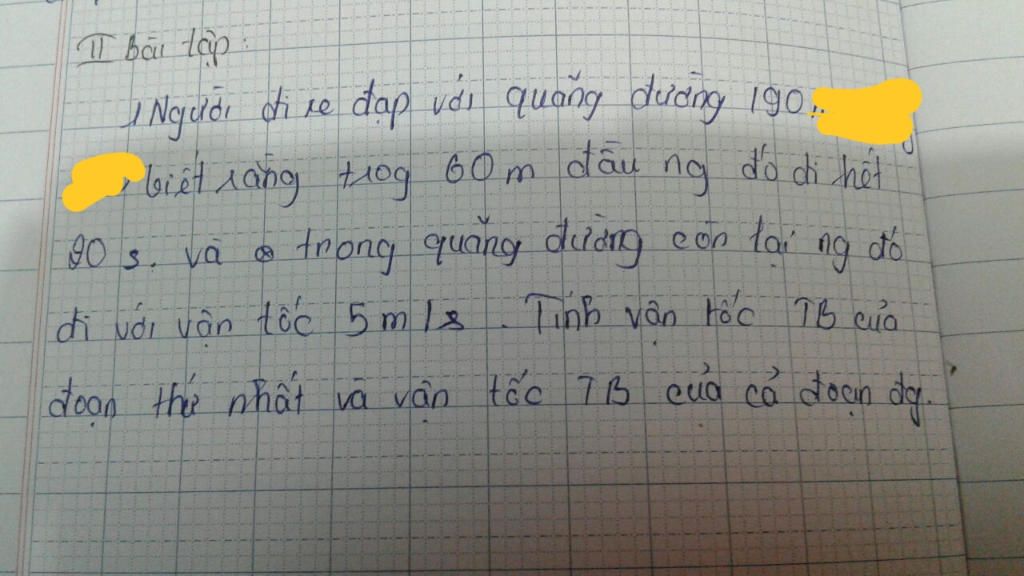 II Bài tập:
1 Người đi xe đạp với quãng đường 190
, biết rằng trog 60 m đầu ng đó đi hết
90 s. và trong quãng đường còn lại ng đó
đi với vận tốc 5 m/s. Tính vận tốc TB của
đoạn thứ nhất và vận tốc TB của cả đoạn đg.